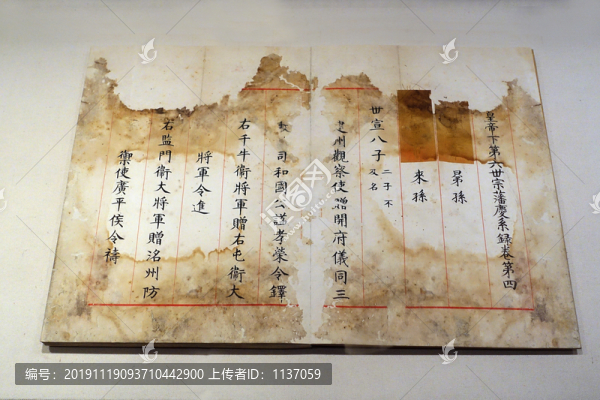 皇帝下第六世宗藩慶系錄卷第四
晜孫
來孫
世宣八子 二子不
及名
州觀察使贈開府儀同三
司和國公謚孝榮令鐸
右千牛衞將軍贈右屯衞大
將軍令進
右監門衞大將軍贈洺州防
禦使廣平侯令禱
编号:20191119093710442900 上传者ID:1137059